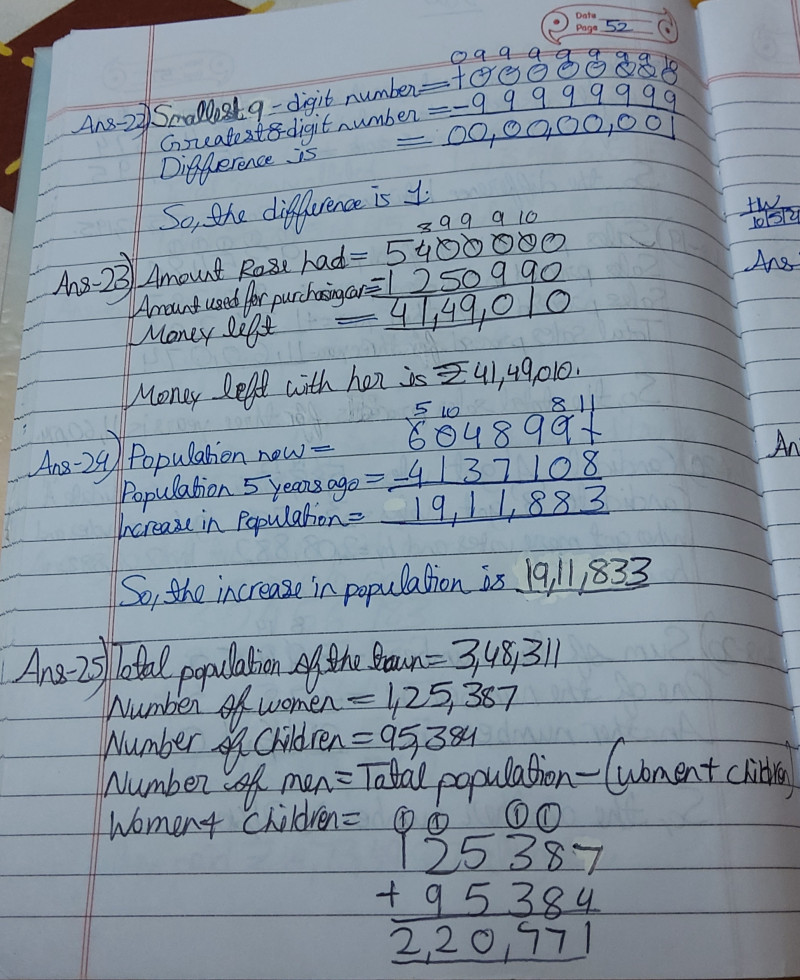 Date
Page 52
0 9 9 9 9 9 9 9 10
Ans-22) Smallest 9-digit number = 100000000
Greatest 8 digit number = -99999999
Difference is = 00,00,00,001
So, the difference is 1.
3 9 9 9 10
Ans-23) Amount Rose had = 5400000
Amount used for purchasing car = -1250990
Money left = 41,49,010
Money left with her is ₹ 41,49,010.
5 10 8 11
Ans-24) Population now = 6048991
Population 5 years ago = -4137108
Increase in Population = 19,11,883
So, the increase in population is 19,11,833
Ans-25) Total population of the town = 3,48,311
Number of women = 1,25,387
Number of Children = 95,384
Number of men = Total population - (women + children)
Women + Children =
1 1 1 1
125387
+ 95384
2,20,771
HW
Ans
An